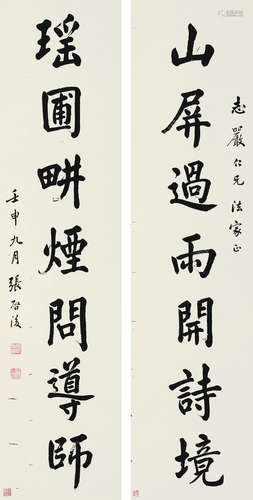 志嚴仁兄法家正
山屏過雨開詩境
瑶圃畊煙問導師
壬申九月張啓後